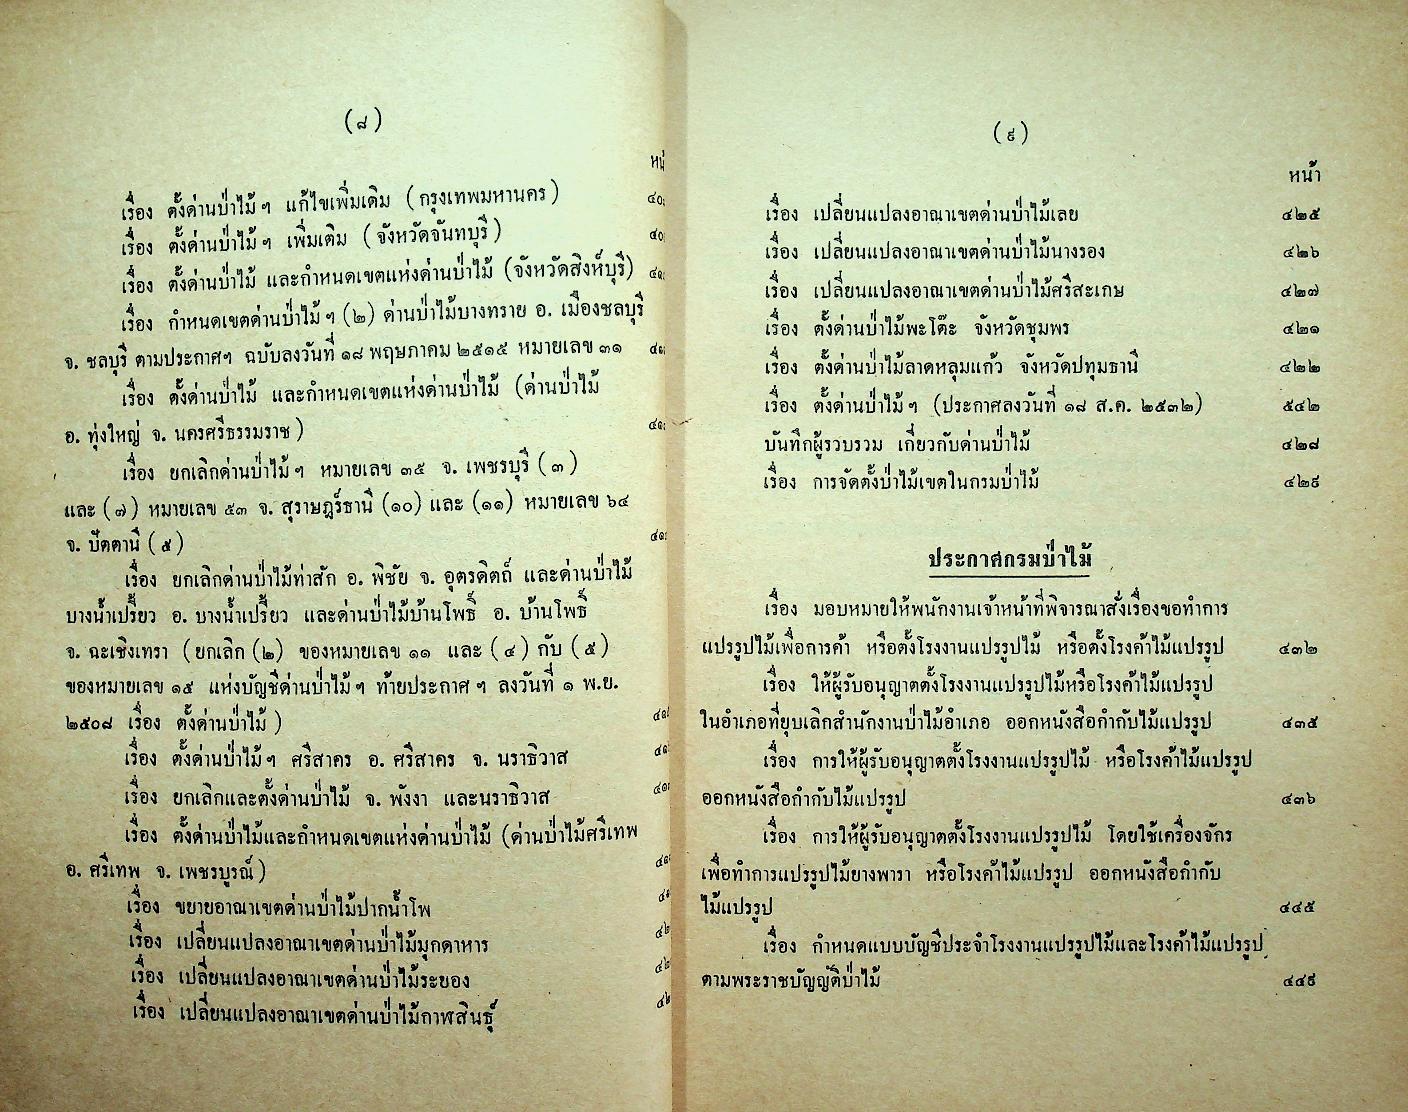 (๘)
เรื่อง ตั้งด่านป่าไม้ฯ แก้ไขเพิ่มเติม (กรุงเทพมหานคร)
เรื่อง ตั้งด่านป่าไม้ฯ เพิ่มเติม (จังหวัดจันทบุรี)
เรื่อง ตั้งด่านป่าไม้ และกำหนดเขตแห่งด่านป่าไม้ (จังหวัดสิงห์บุรี)
เรื่อง กำหนดเขตด่านป่าไม้ฯ (๒) ด่านป่าไม้บางทราย อ. เมืองชลบุรี
จ. ชลบุรี ตามประกาศฯ ฉบับลงวันที่ ๑๘ พฤษภาคม ๒๕๑๕ หมายเลข ๓๑
เรื่อง ตั้งด่านป่าไม้ และกำหนดเขตแห่งด่านป่าไม้ (ด่านป่าไม้
อ. ทุ่งใหญ่ จ. นครศรีธรรมราช)
เรื่อง ยกเลิกด่านป่าไม้ฯ หมายเลข ๓๕ จ. เพชรบุรี (๓)
และ (๗) หมายเลข ๕๓ จ. สุราษฎร์ธานี (๑๐) และ (๑๑) หมายเลข ๖๔
จ. ปัตตานี (๕)
เรื่อง ยกเลิกด่านป่าไม้ท่าสัก อ. พิชัย จ. อุตรดิตถ์ และด่านป่าไม้
บางน้ำเปรี้ยว อ. บางน้ำเปรี้ยว และด่านป่าไม้บ้านโพธิ์ อ. บ้านโพธิ์
จ. ฉะเชิงเทรา (ยกเลิก (๒) ของหมายเลข ๑๑ และ (๔) กับ (๕)
ของหมายเลข ๑๕ แห่งบัญชีด่านป่าไม้ฯ ท้ายประกาศฯ ลงวันที่ ๑ พ.ย.
๒๕๐๘ เรื่อง ตั้งด่านป่าไม้)
เรื่อง ตั้งด่านป่าไม้ฯ ศรีสาคร อ. ศรีสาคร จ. นราธิวาส
เรื่อง ยกเลิกและตั้งด่านป่าไม้ จ. พังงา และนราธิวาส
เรื่อง ตั้งด่านป่าไม้และกำหนดเขตแห่งด่านป่าไม้ (ด่านป่าไม้ศรีเทพ
อ. ศรีเทพ จ. เพชรบูรณ์)
เรื่อง ขยายอาณาเขตด่านป่าไม้ปากน้ำโพ
เรื่อง เปลี่ยนแปลงอาณาเขตด่านป่าไม้มุกดาหาร
เรื่อง เปลี่ยนแปลงอาณาเขตด่านป่าไม้ระยอง
เรื่อง เปลี่ยนแปลงอาณาเขตด่านป่าไม้กาฬสินธุ์
(๙)
หน้า
เรื่อง เปลี่ยนแปลงอาณาเขตด่านป่าไม้เลย ๔๒๕
เรื่อง เปลี่ยนแปลงอาณาเขตด่านป่าไม้นางรอง ๔๒๖
เรื่อง เปลี่ยนแปลงอาณาเขตด่านป่าไม้ศรีสะเกษ ๔๒๗
เรื่อง ตั้งด่านป่าไม้พะโต๊ะ จังหวัดชุมพร ๔๒๑
เรื่อง ตั้งด่านป่าไม้ลาดหลุมแก้ว จังหวัดปทุมธานี ๔๒๒
เรื่อง ตั้งด่านป่าไม้ฯ (ประกาศลงวันที่ ๑๘ ส.ค. ๒๕๓๒) ๕๔๒
บันทึกผู้รวบรวม เกี่ยวกับด่านป่าไม้ ๔๒๘
เรื่อง การจัดตั้งป่าไม้เขตในกรมป่าไม้ ๔๒๙
ประกาศกรมป่าไม้
เรื่อง มอบหมายให้พนักงานเจ้าหน้าที่พิจารณาสั่งเรื่องขอทำการ
แปรรูปไม้เพื่อการค้า หรือตั้งโรงงานแปรรูปไม้ หรือตั้งโรงค้าไม้แปรรูป ๔๓๒
เรื่อง ให้ผู้รับอนุญาตตั้งโรงงานแปรรูปไม้หรือโรงค้าไม้แปรรูป
ในอำเภอที่ยุบเลิกสำนักงานป่าไม้อำเภอ ออกหนังสือกำกับไม้แปรรูป ๔๓๕
เรื่อง การให้ผู้รับอนุญาตตั้งโรงงานแปรรูปไม้ หรือโรงค้าไม้แปรรูป
ออกหนังสือกำกับไม้แปรรูป ๔๓๖
เรื่อง การให้ผู้รับอนุญาตตั้งโรงงานแปรรูปไม้ โดยใช้เครื่องจักร
เพื่อทำการแปรรูปไม้ยางพารา หรือโรงค้าไม้แปรรูป ออกหนังสือกำกับ
ไม้แปรรูป ๔๔๕
เรื่อง กำหนดแบบบัญชีประจำโรงงานแปรรูปไม้และโรงค้าไม้แปรรูป
ตามพระราชบัญญัติป่าไม้ ๔๔๙